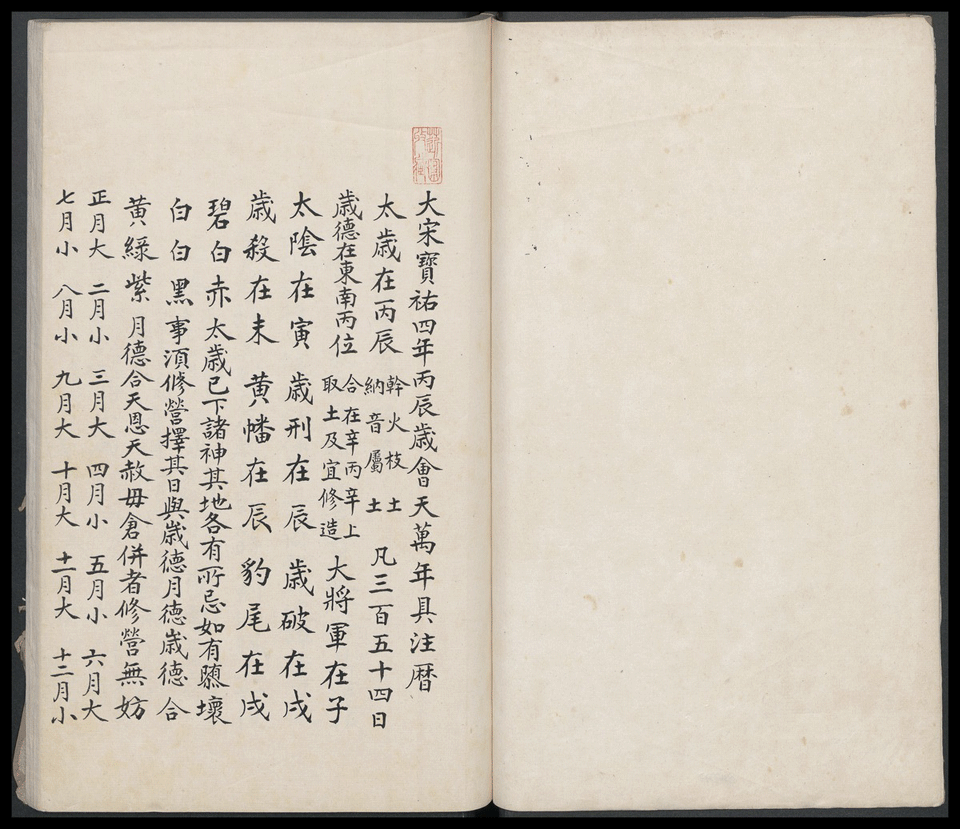 大宋寶祐四年丙辰歳會天萬年具注暦
太歳在丙辰 幹火枝土 納音屬土 凡三百五十四日
歳德在東南丙位 合在辛丙辛上 取土及宜修造 大將軍在子
太陰在寅 歳刑在辰 歳破在戌
歳殺在未 黄幡在辰 豹尾在戌
碧白赤 太歳已下諸神其地各有所忌如有隳壞
白白黑 事湏修營擇其日與歳德月德歳德合
黄緑紫 月德合天恩天赦毋倉併者修營無妨
正月大 二月小 三月大 四月小 五月小 六月大
七月小 八月小 九月大 十月大 十一月大 十二月小